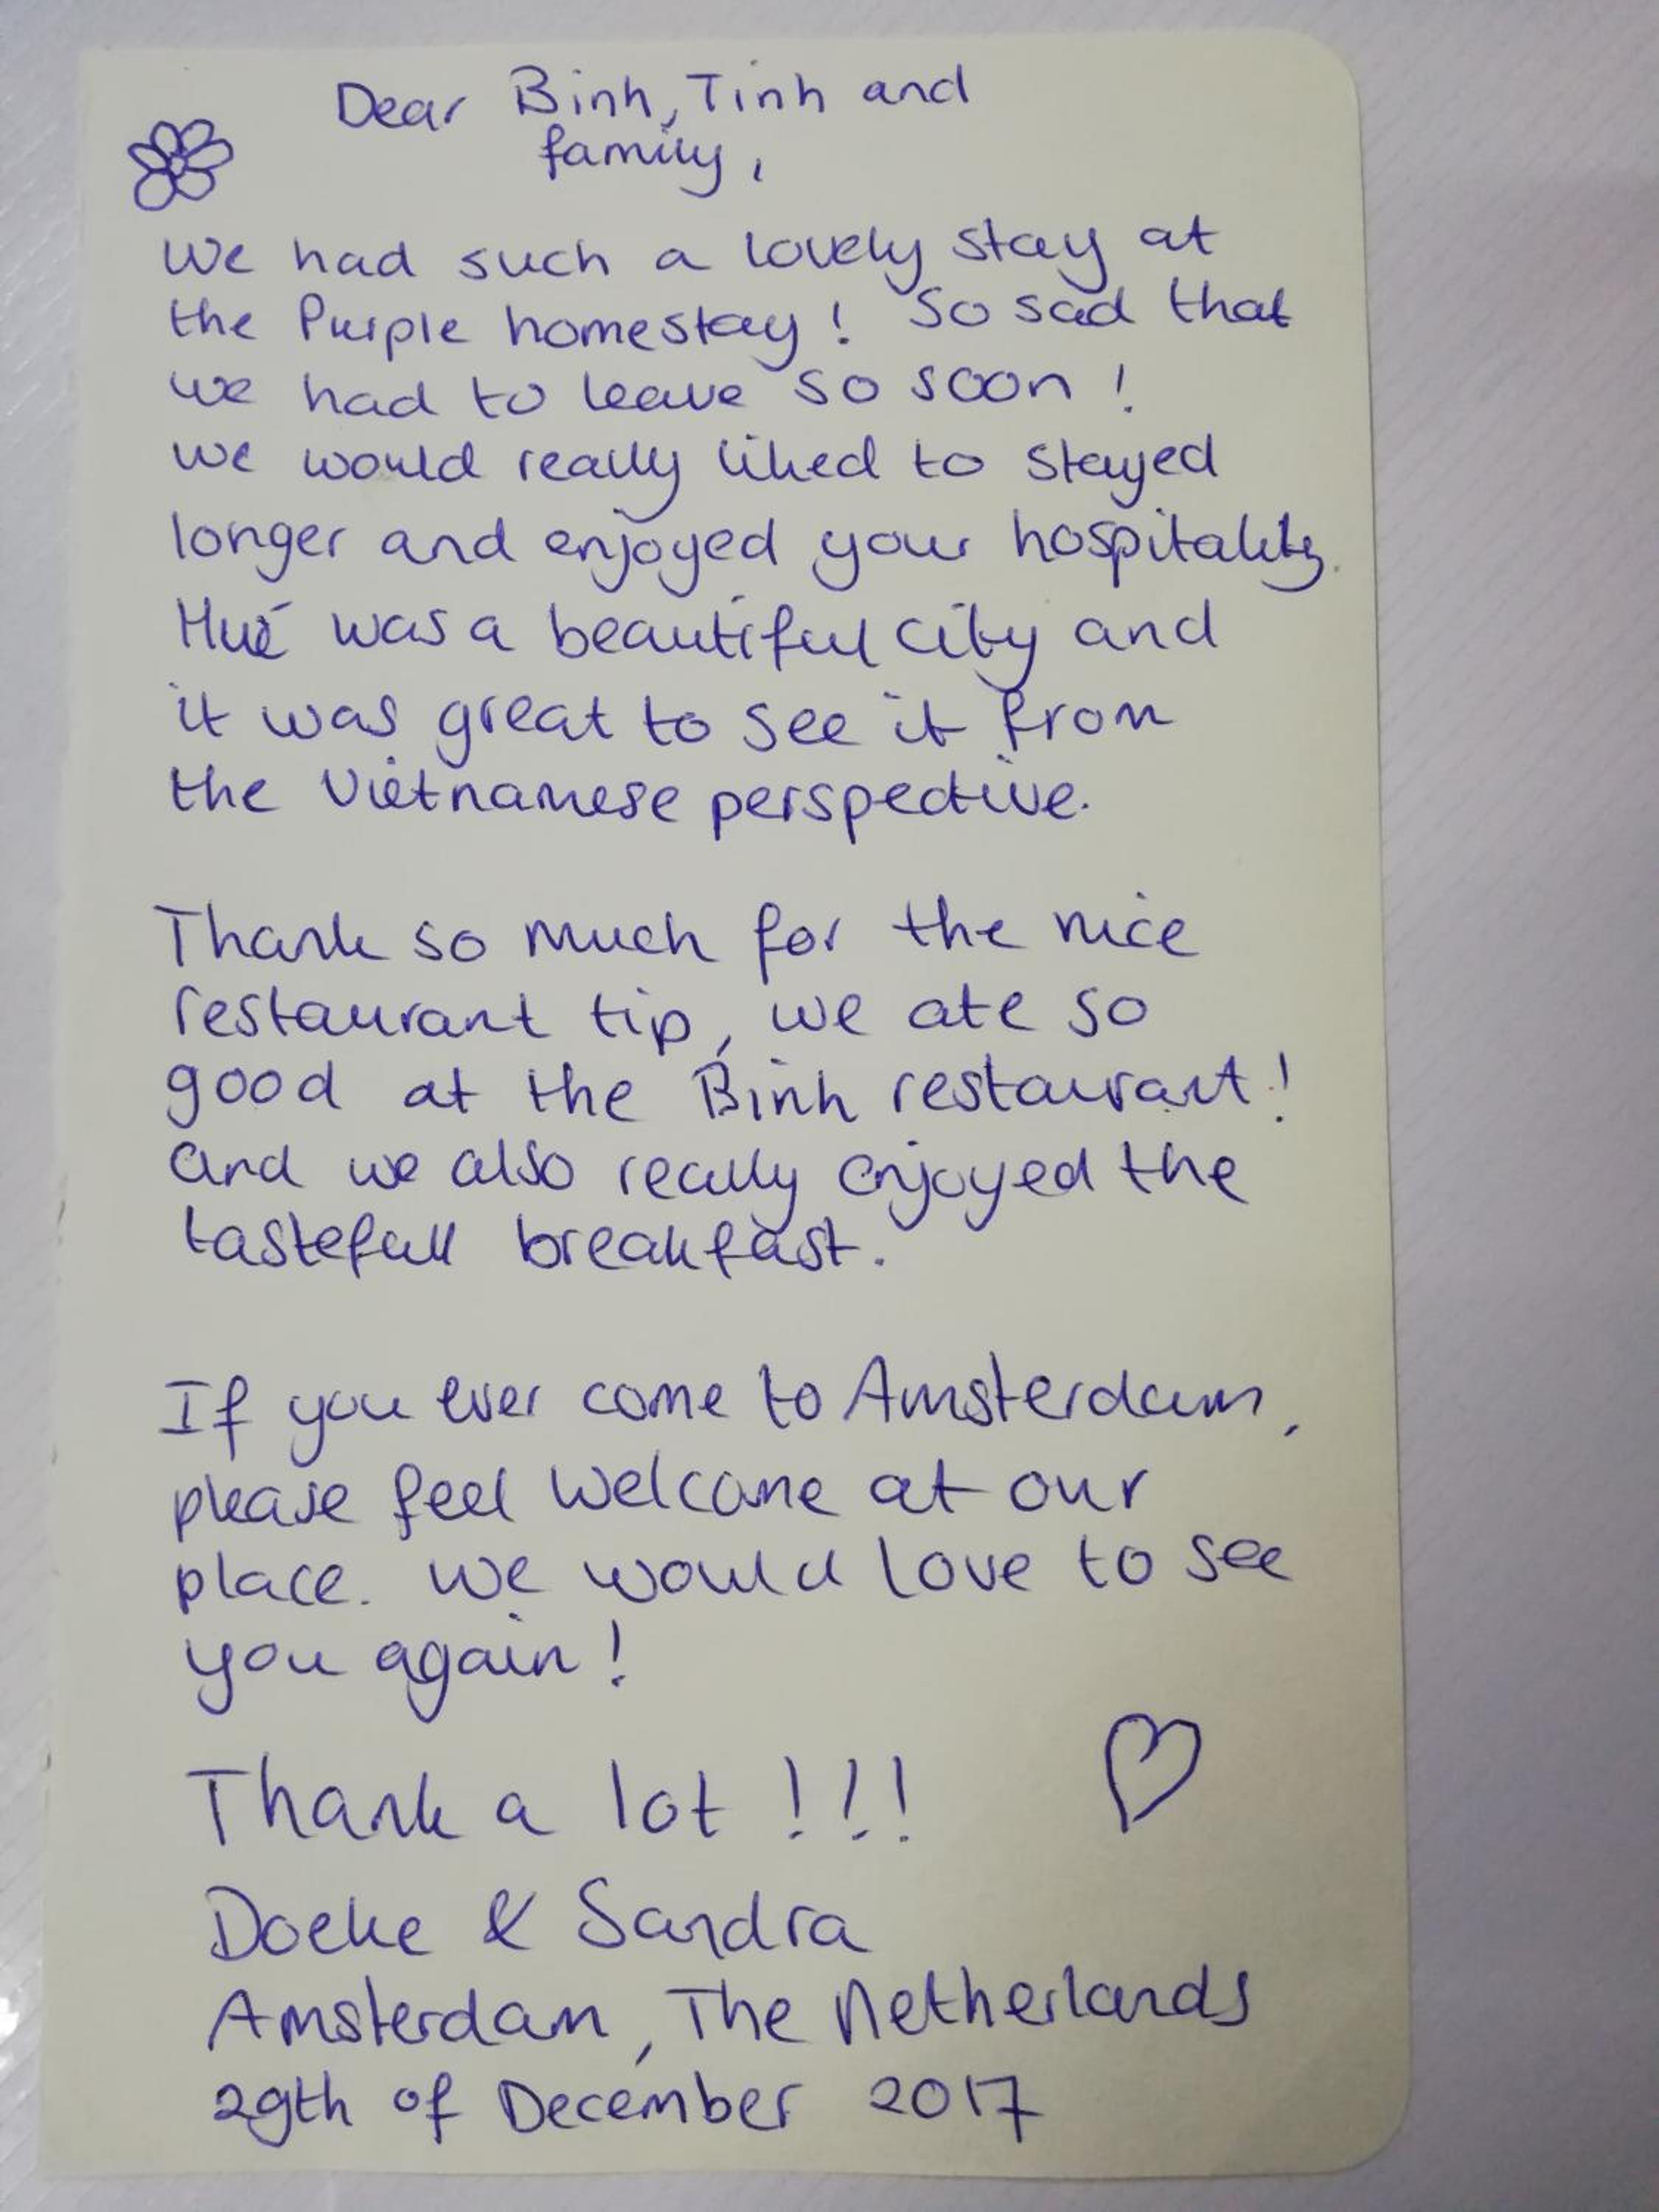 Dear Binh, Tinh and
family,
We had such a lovely stay at
the Purple homestay! So sad that
we had to leave so soon!
we would really liked to stayed
longer and enjoyed your hospitality.
Hué was a beautiful city and
it was great to see it from
the Vietnamese perspective.
Thank so much for the nice
restaurant tip, we ate so
good at the Binh restaurant!
And we also really enjoyed the
tastefull breakfast.
If you ever come to Amsterdam,
please feel welcome at our
place. We would love to see
you again!
Thank a lot!!!
Doeke & Sandra
Amsterdam, The Netherlands
29th of December 2017